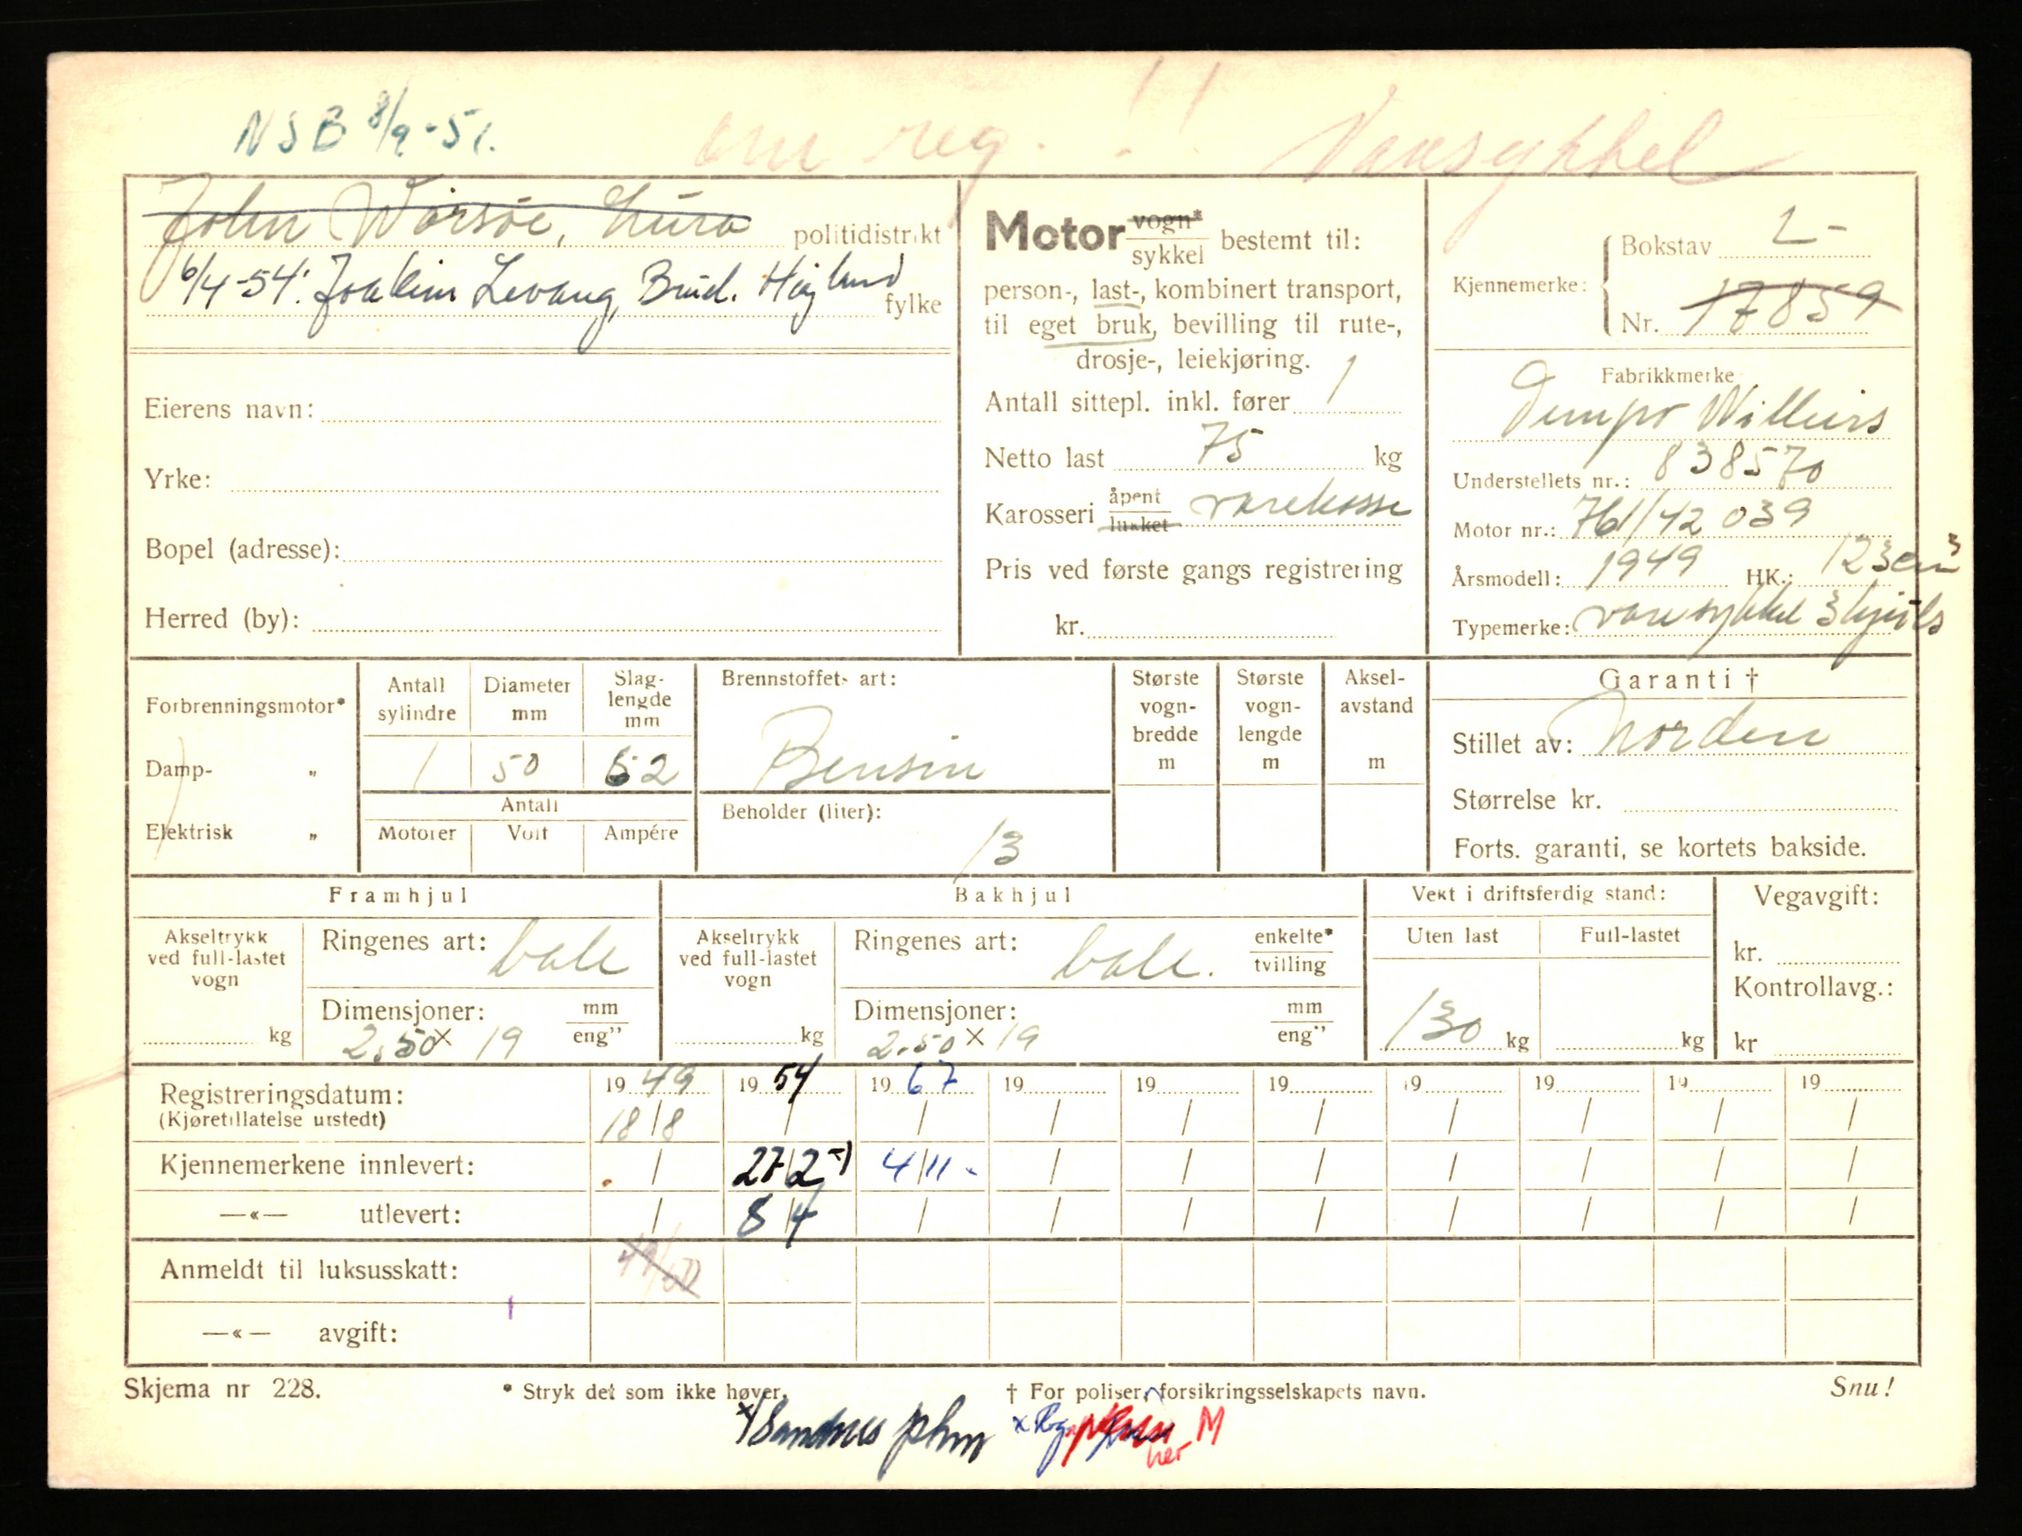 NSB 8/9-51.
om reg. !! Varesykkel
John Warsøe, Lura politidistrikt
6/4-54: Joakim Levang, Brud. Høyland fylke
Eierens navn:
Yrke:
Bopel (adresse):
Herred (by):
Motor vogn* / sykkel bestemt til:
person-, last-, kombinert transport,
til eget bruk, bevilling til rute-,
drosje-, leiekjøring.
Antall sittepl. inkl. fører 1
Netto last 75 kg
Karosseri åpent / lukket varekasse
Pris ved første gangs registrering
kr.
Kjennemerke: Bokstav L-
Nr. 17859
Fabrikkmerke
Tempo Williers
Understellets nr.: 838570
Motor nr.: 761/42 039
Årsmodell: 1949 HK.: 123 cm³
Typemerke: varesykkel 3 hjuls
Forbrenningsmotor*
Damp- „
Elektrisk „
Antall sylindre 1
Diameter mm 50
Slaglengde mm 62
Antall
Motorer Volt Ampére
Brennstoffets art:
Bensin
Beholder (liter):
13
Største vogn-bredde m
Største vogn-lengde m
Aksel-avstand m
Garanti †
Stillet av: Norden
Størrelse kr.
Forts. garanti, se kortets bakside.
Framhjul
Akseltrykk ved full-lastet vogn kg
Ringenes art: ball
Dimensjoner: mm / eng”
2.50 x 19
Bakhjul
Akseltrykk ved full-lastet vogn kg
Ringenes art: ball. enkelte* / tvilling
Dimensjoner: mm / eng”
2.50 x 19
Vekt i driftsferdig stand:
Uten last Full-lastet
130 kg kg
Vegavgift:
kr.
Kontrollavg.:
kr
Registreringsdatum: 19 49 19 54 19 67 19 19 19 19 19 19 19
(Kjøretillatelse utstedt) 18/8 / / / / / / / / /
Kjennemerkene innlevert: / 27/2 x) 4/11- / / / / / / /
—«— utlevert: / 8/4 / / / / / / / /
Anmeldt til luksusskatt: 49/50
—«— avgift:
Skjema nr 228. * Stryk det som ikke høver. † For poliser, forsikringsselskapets navn. Snu!
x) Sandnes phm x Rog M
her